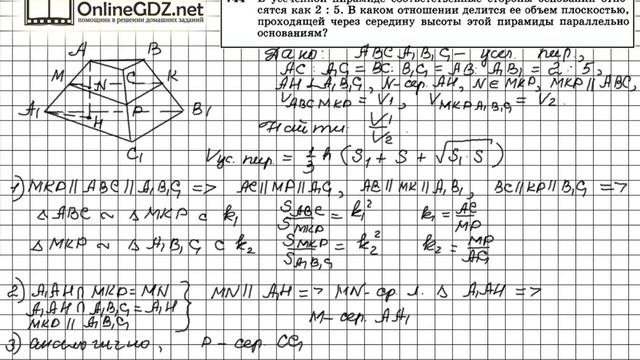 OnlineGDZ.net
помощник в решении домашних заданий
сятся как 2 : 5. В каком отношении делится ее объем плоскостью,
проходящей через середину высоты этой пирамиды параллельно
основаниям?
Дано: ABCA₁B₁C₁ – усеч. пир.,
AC : A₁C₁ = BC : B₁C₁ = AB : A₁B₁ = 2 : 5,
AH ⊥ A₁B₁C₁, N – сер. AH, N ∈ MKP, MKP ∥ ABC,
V_ABCMKP = V₁, V_MKPA₁B₁C₁ = V₂.
Найти: V₁/V₂
Vус. пир. = 1/3 h (S₁ + S + √(S₁·S))
A B
M N C K
A₁ H P B₁
C₁
1) MKP ∥ ABC ∥ A₁B₁C₁ => AC ∥ MP ∥ A₁C₁, AB ∥ MK ∥ A₁B₁, BC ∥ KP ∥ B₁C₁ =>
△ ABC ∼ △ MKP с k₁ S_ABC/S_MKP = k₁² k₁ = AC/MP
△ MKP ∼ △ A₁B₁C₁ с k₂ S_MKP/S_A₁B₁C₁ = k₂² k₂ = MP/A₁C₁
2) A₁AH ∩ MKP = MN
A₁AH ∩ A₁B₁C₁ = A₁H
MKP ∥ A₁B₁C₁
} MN ∥ A₁H => MN – ср. л. △ A₁AH =>
M – сер. AA₁
3) аналогично, P – сер. CC₁